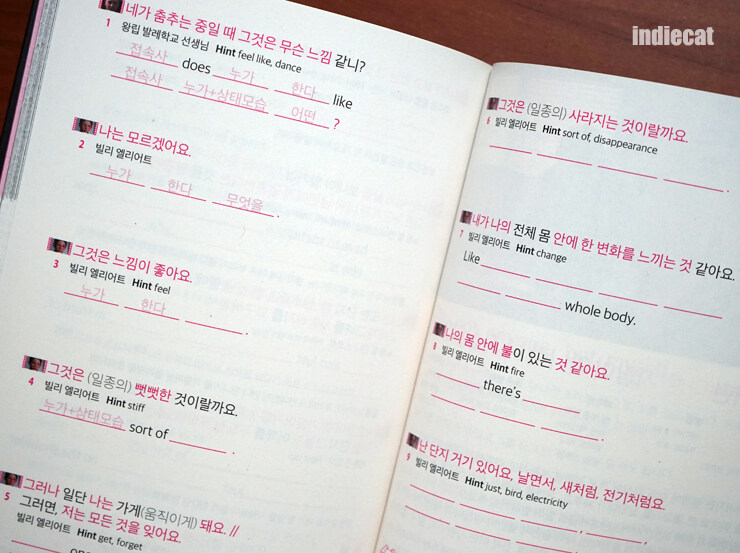 indiecat
네가 춤추는 중일 때 그것은 무슨 느낌 같니?
1 왕립 발레학교 선생님 Hint feel like, dance
접속사 does 누가 한다 like
접속사 누가+상태모습 어떤 ?
나는 모르겠어요.
2 빌리 엘리어트
누가 한다 무엇을 .
그것은 느낌이 좋아요.
3 빌리 엘리어트 Hint feel
누가 한다 .
그것은 (일종의) 뻣뻣한 것이랄까요.
4 빌리 엘리어트 Hint stiff
누가+상태모습 sort of .
그러나 일단 나는 가게(움직이게) 돼요. //
5 그러면, 저는 모든 것을 잊어요.
빌리 엘리어트 Hint get, forget
그것은 (일종의) 사라지는 것이랄까요.
6 빌리 엘리어트 Hint sort of, disappearance
.
내가 나의 전체 몸 안에 한 변화를 느끼는 것 같아요.
7 빌리 엘리어트 Hint change
Like
whole body.
나의 몸 안에 불이 있는 것 같아요.
8 빌리 엘리어트 Hint fire
there's
.
난 단지 거기 있어요, 날면서, 새처럼, 전기처럼요.
9 빌리 엘리어트 Hint just, bird, electricity
, .